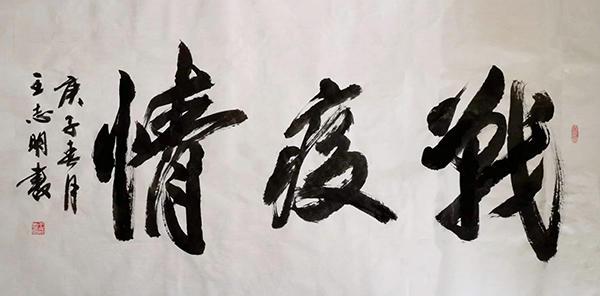 戰疫情
庚子春月
王志明書